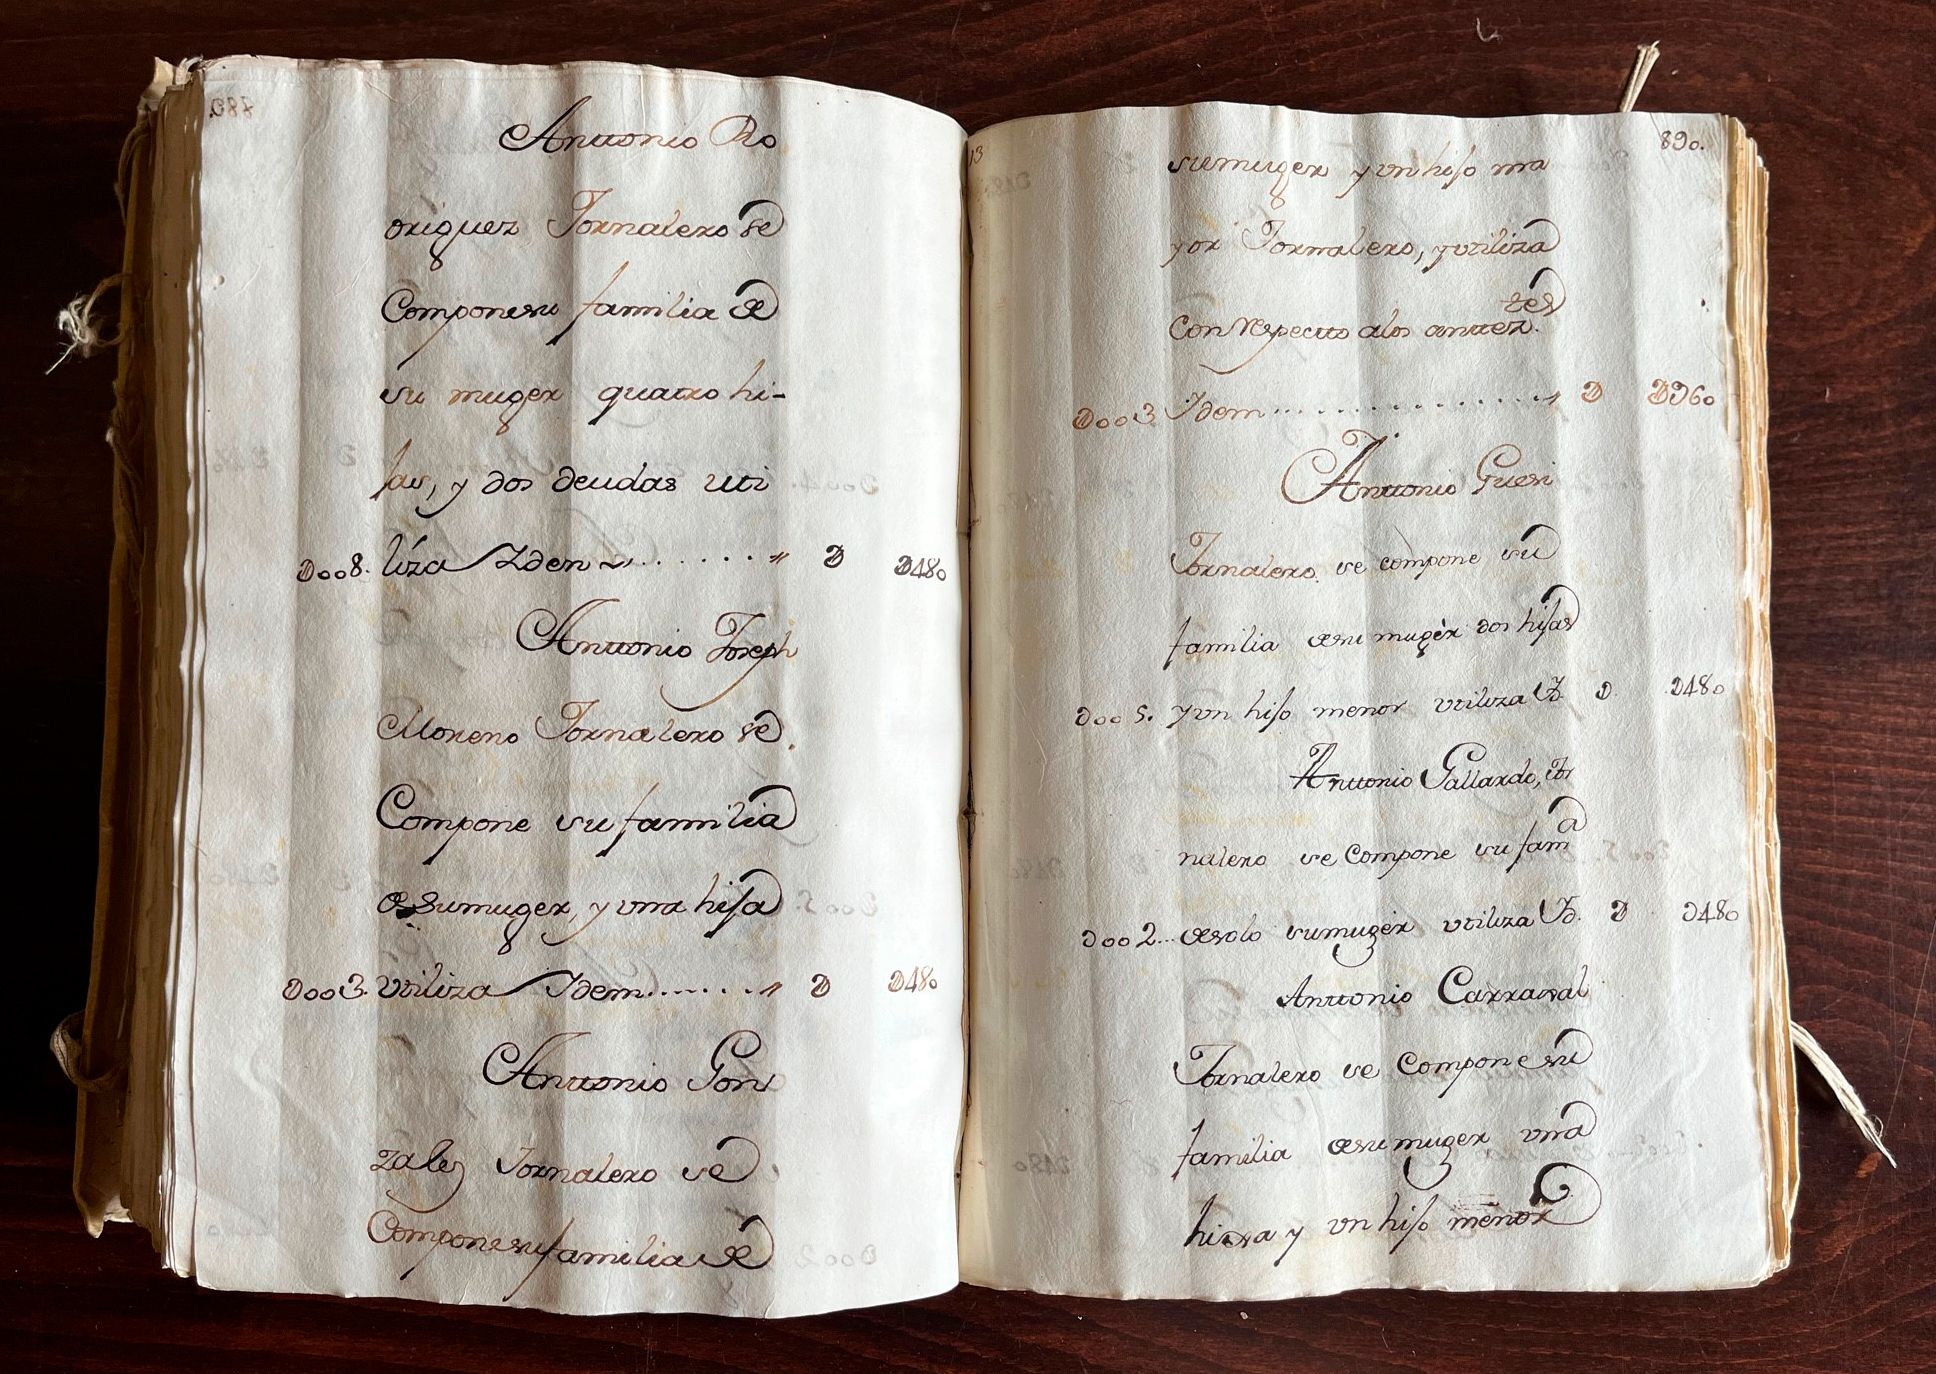 Antonio Ro
driguez Jornalero se
Compone su familia de
su muger quatro hi-
jas, y dos deudas uti
D008. liza Iden " D D480
Antonio Joseph
Moreno Jornalero se
Compone su familia
de Su muger, y vna hija
D003. Vtiliza Idem " D D480
Antonio Gon
zales Jornalero se
Compone su familia de
13
890.
su muger y vn hijo ma
yor Jornalero, y vtiliza
tes
con respecto a los antez.
D003. Idem " D D960
Antonio Gueri
Jornalero se compone su
familia de su muger dos hijas
D005. y vn hijo menor vtiliza Yd. D. D480
Antonio Gallardo, Jor
nalero se Compone su fam.ª
D002.. de solo su muger vtiliza Yd. D D480
Antonio Carxaval
Jornalero se Compone su
familia de su muger vna
hixa y vn hijo menor